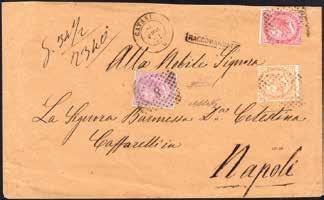 g. 54 1/2
RACCOMANDATA
Alla Nobile Signora
La Signora Baronessa D.na Celestina
Caffarelli in
Napoli